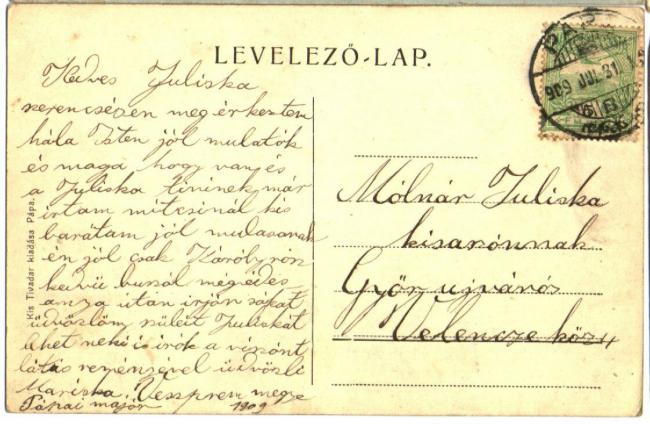 LEVELEZŐ-LAP.
Kedves Juliska
szerencsésen meg érkeztem
hála Isten jól mulatók
és maga hogy van és
a Juliska nininek már
irtam mitcsinál kis
barátam jól mulasanak
én jól csak Károly
kedvü búsúl
anya után irjon
üdvözlöm szüleit Juliskát
lehet neki is irok a viszónt
látás reményével üdvözli
Mariska Veszprem megye
Pápai majór 1909
Kis Tivadar kiadása Pápa.
PÁPA
909 JUL 31
Mólnár Juliska
kisasónnak
Győr ujváros
Velencze köz 4